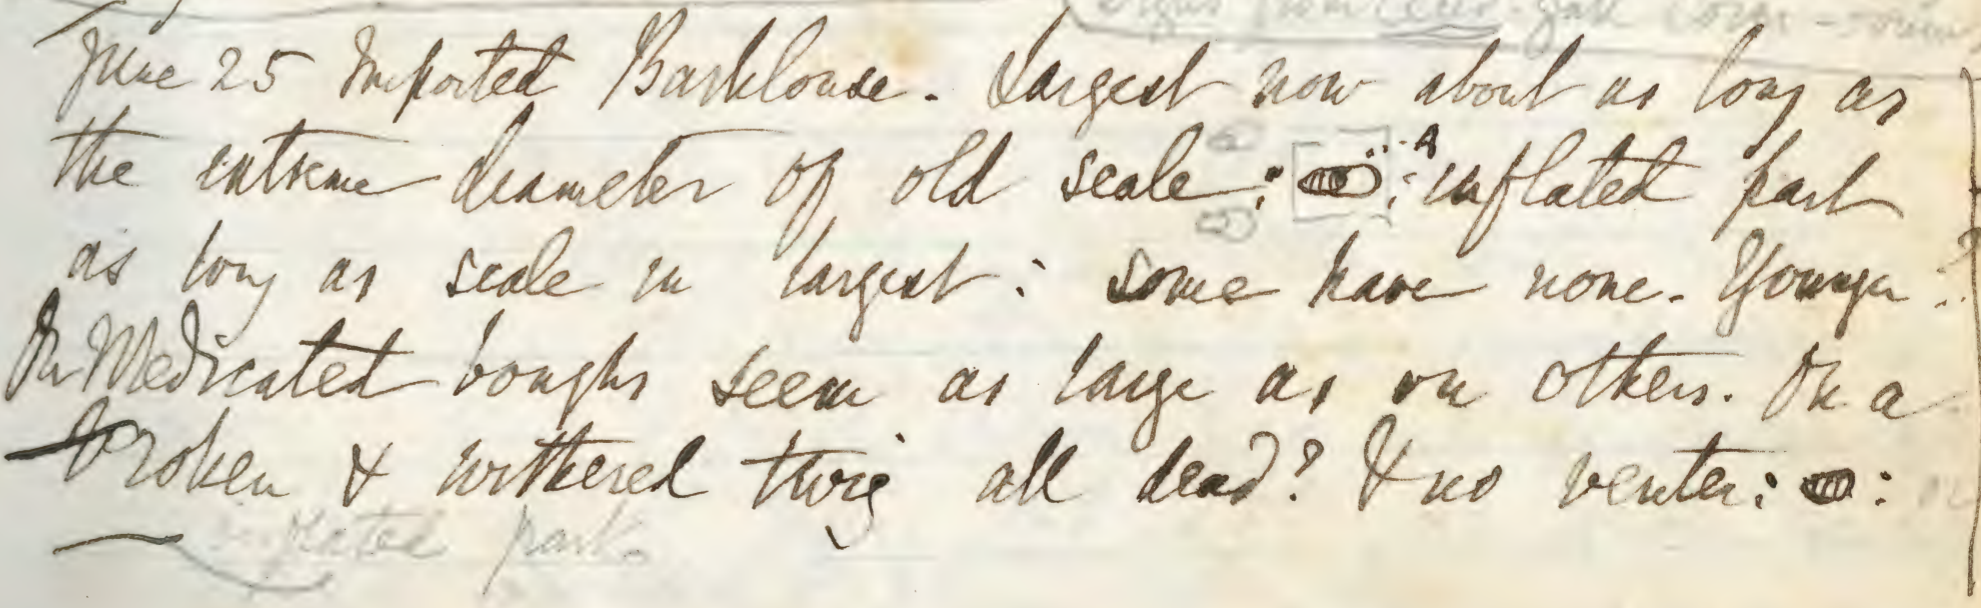 gall
June 25 Imported Barklouse. Largest now about as long as
the extreme diameter of old scale : : A inflated part
as long as scale in largest : some have none. Younger?
On Medicated boughs seem as large as on others. On a
broken & withered twig all dead? & no venter : :
inflated part